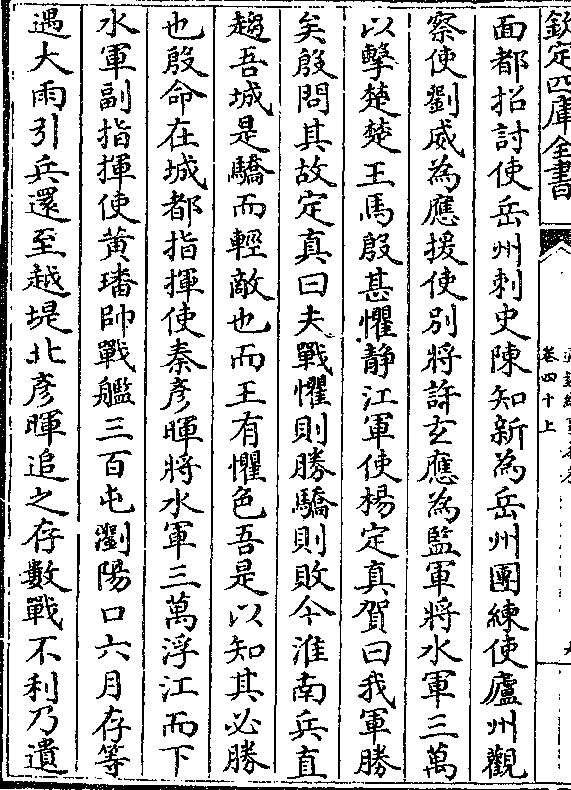 欽定四庫全書
卷四十上
面都招討使岳州刺史陳知新為岳州團練使廬州觀
察使劉威為應援使别將許玄應為監軍將水軍三萬
以擊楚楚王馬殷甚懼静江軍使楊定真賀曰我軍勝
矣殷問其故定真曰夫戰懼則勝驕則敗今淮南兵直
趨吾城是驕而輕敵也而王有懼色吾是以知其必勝
也殷命在城都指揮使秦彦暉將水軍三萬浮江而下
水軍副指揮使黄璠帥戰艦三百屯瀏陽口六月存等
遇大雨引兵還至越堤北彦暉追之存數戰不利乃遺